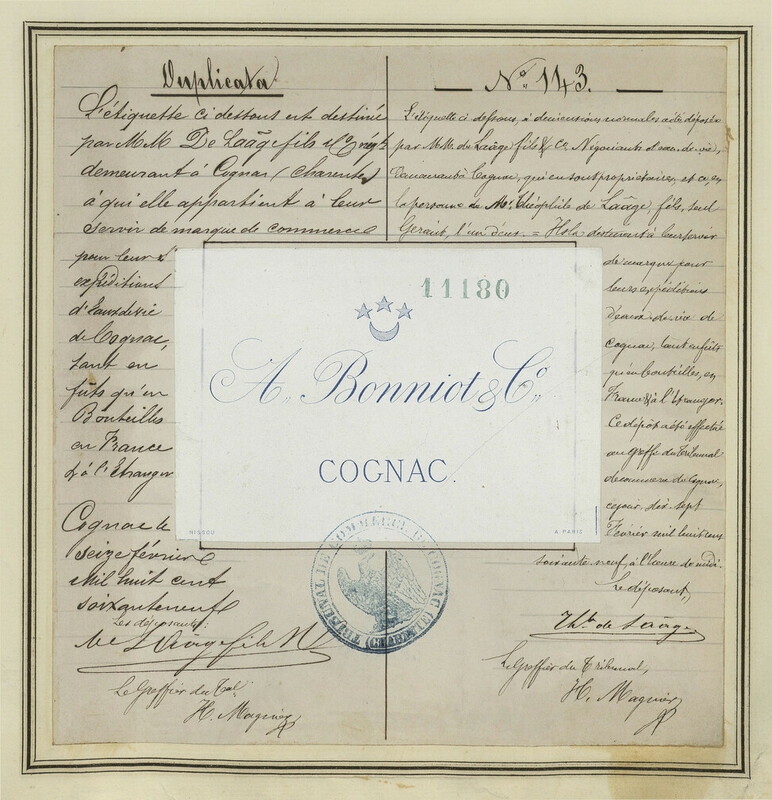 Duplicata
L'étiquette ci dessous est destinée
par MM. De Laâge fils & Cie négts
demeurant à Cognac (Charente)
à qui elle appartient à leur
servir de marque de commerce
pour leurs
expéditions
d'Eaux de vie
de Cognac,
tant en
fûts qu'en
Bouteilles
en France
& à l'Etranger
Cognac le
seize février
mil huit cent
soixante neuf
Les déposants:
De Laâge fils
Le Greffier du Tal.
H. Magnier
No. 143.
L'étiquette ci dessous, à dimensions normales a été déposée
par MM. de Laâge fils & Ce Négociants d'eau-de-vie,
demeurant à Cognac, qui en sont propriétaires, et ce, en
la personne de Mr. Théophile de Laâge, fils, seul
Gérant, l'un d'eux. = destinant à leur servir
de marque pour
leurs expéditions
d'eaux-de-vie de
Cognac, tant en fûts
qu'en bouteilles, en
France & à l'Etranger.
Ce dépôt a été effectué
au Greffe du Tribunal
de commerce de Cognac,
ce jour, dix sept
Février mil huit cent
soixante-neuf, à l'heure de midi.
Le déposant,
Th. de Laâge
Le Greffier du Tribunal,
H. Magnier
11180
A. Bonniot & Co.
COGNAC.
NISSOU
A PARIS
TRIBUNAL DE COMMERCE DE COGNAC